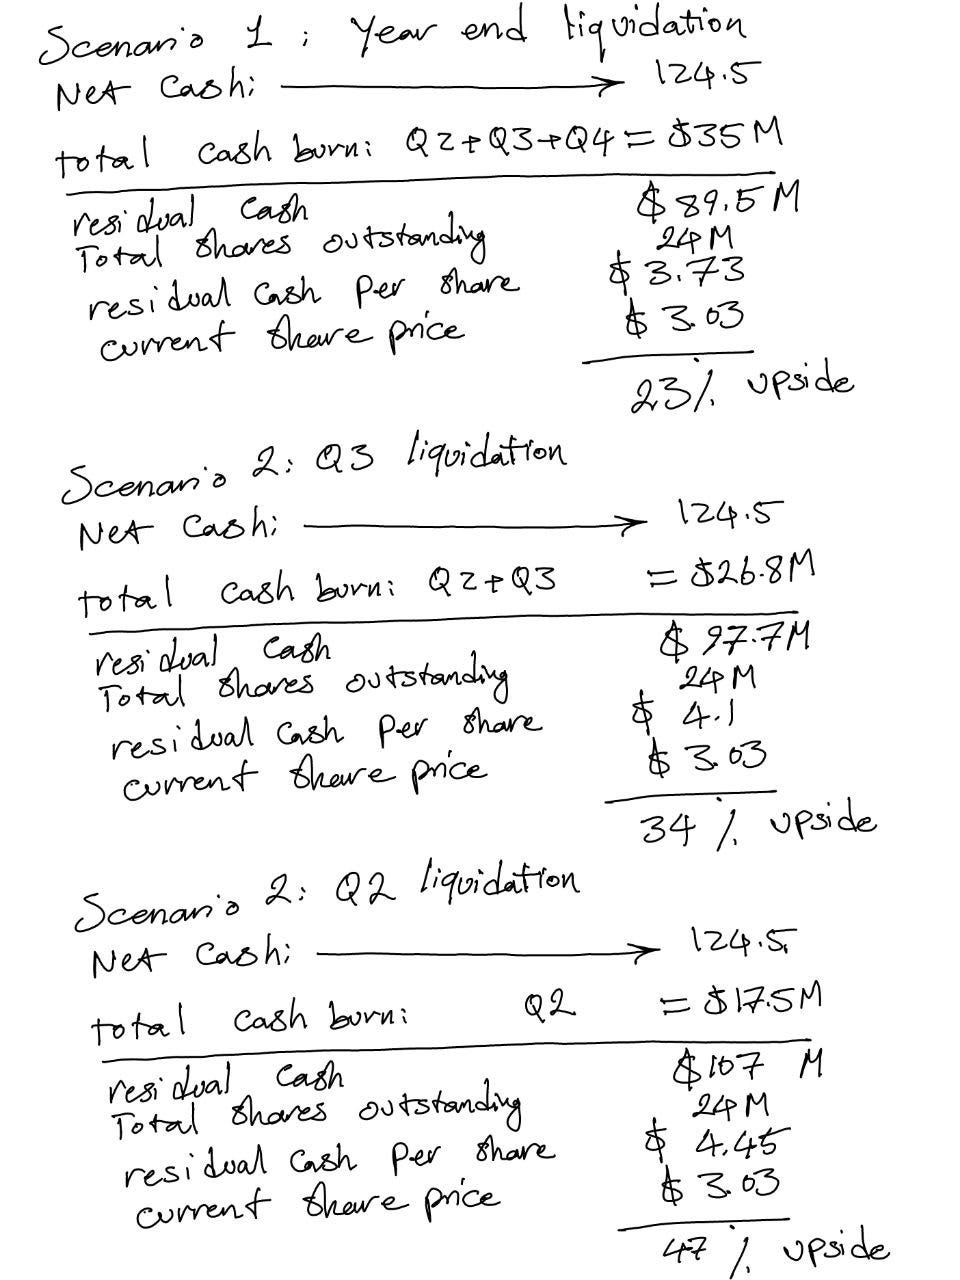 Scenario 1: Year end liquidation
Net Cash: → 124.5
total cash burn: Q2+Q3+Q4 = $35M
residual cash $89.5M
Total shares outstanding 24M
residual cash per share $3.73
current share price $3.03
23% upside
Scenario 2: Q3 liquidation
Net Cash: → 124.5
total cash burn: Q2+Q3 = $26.8M
residual cash $97.7M
Total shares outstanding 24M
residual cash per share $4.1
current share price $3.03
34% upside
Scenario 2: Q2 liquidation
Net Cash: → 124.5
total cash burn: Q2 = $17.5M
residual cash $107 M
Total shares outstanding 24M
residual cash per share $4.45
current share price $3.03
47% upside